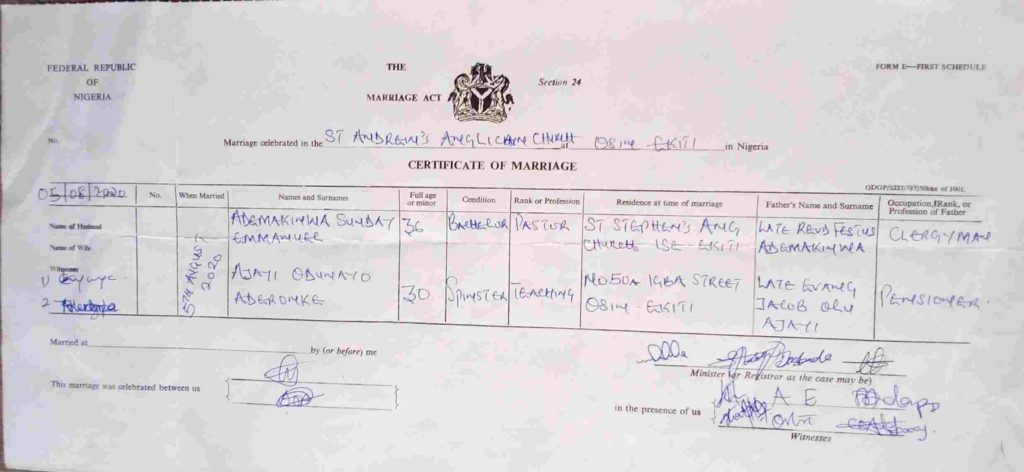 FEDERAL REPUBLIC
OF
NIGERIA
THE
MARRIAGE ACT
Section 24
FORM E—FIRST SCHEDULE
No.
Marriage celebrated in the ST ANDREW'S ANGLICAN CHURCH at OSIN - EKITI in Nigeria
CERTIFICATE OF MARRIAGE
05/08/2020
No.
When Married
Names and Surnames
Full age
or minor
Condition
Rank or Profession
Residence at time of marriage
Father's Name and Surname
Occupation, Rank, or
Profession of Father
Name of Husband
ADEMAKINWA SUNDAY
EMMANUEL
36
BACHELOR
PASTOR
ST STEPHEN'S ANG
CHURCH ISE - EKITI
LATE REVD FESTUS
ADEMAKINWA
CLERGYMAN
Name of Wife
5TH AUGUST
2020
AJAYI ODUNAYO
ADERONKE
30
SPINSTER
TEACHING
NO 50A IGBA STREET
OSIN - EKITI
LATE EVANG
JACOB OLU
AJAYI
PENSIONER.
Witnesses
1)
2
Married at
by (or before) me
Minister (or Registrar as the case may be)
This marriage was celebrated between us
in the presence of us
A E
Witnesses